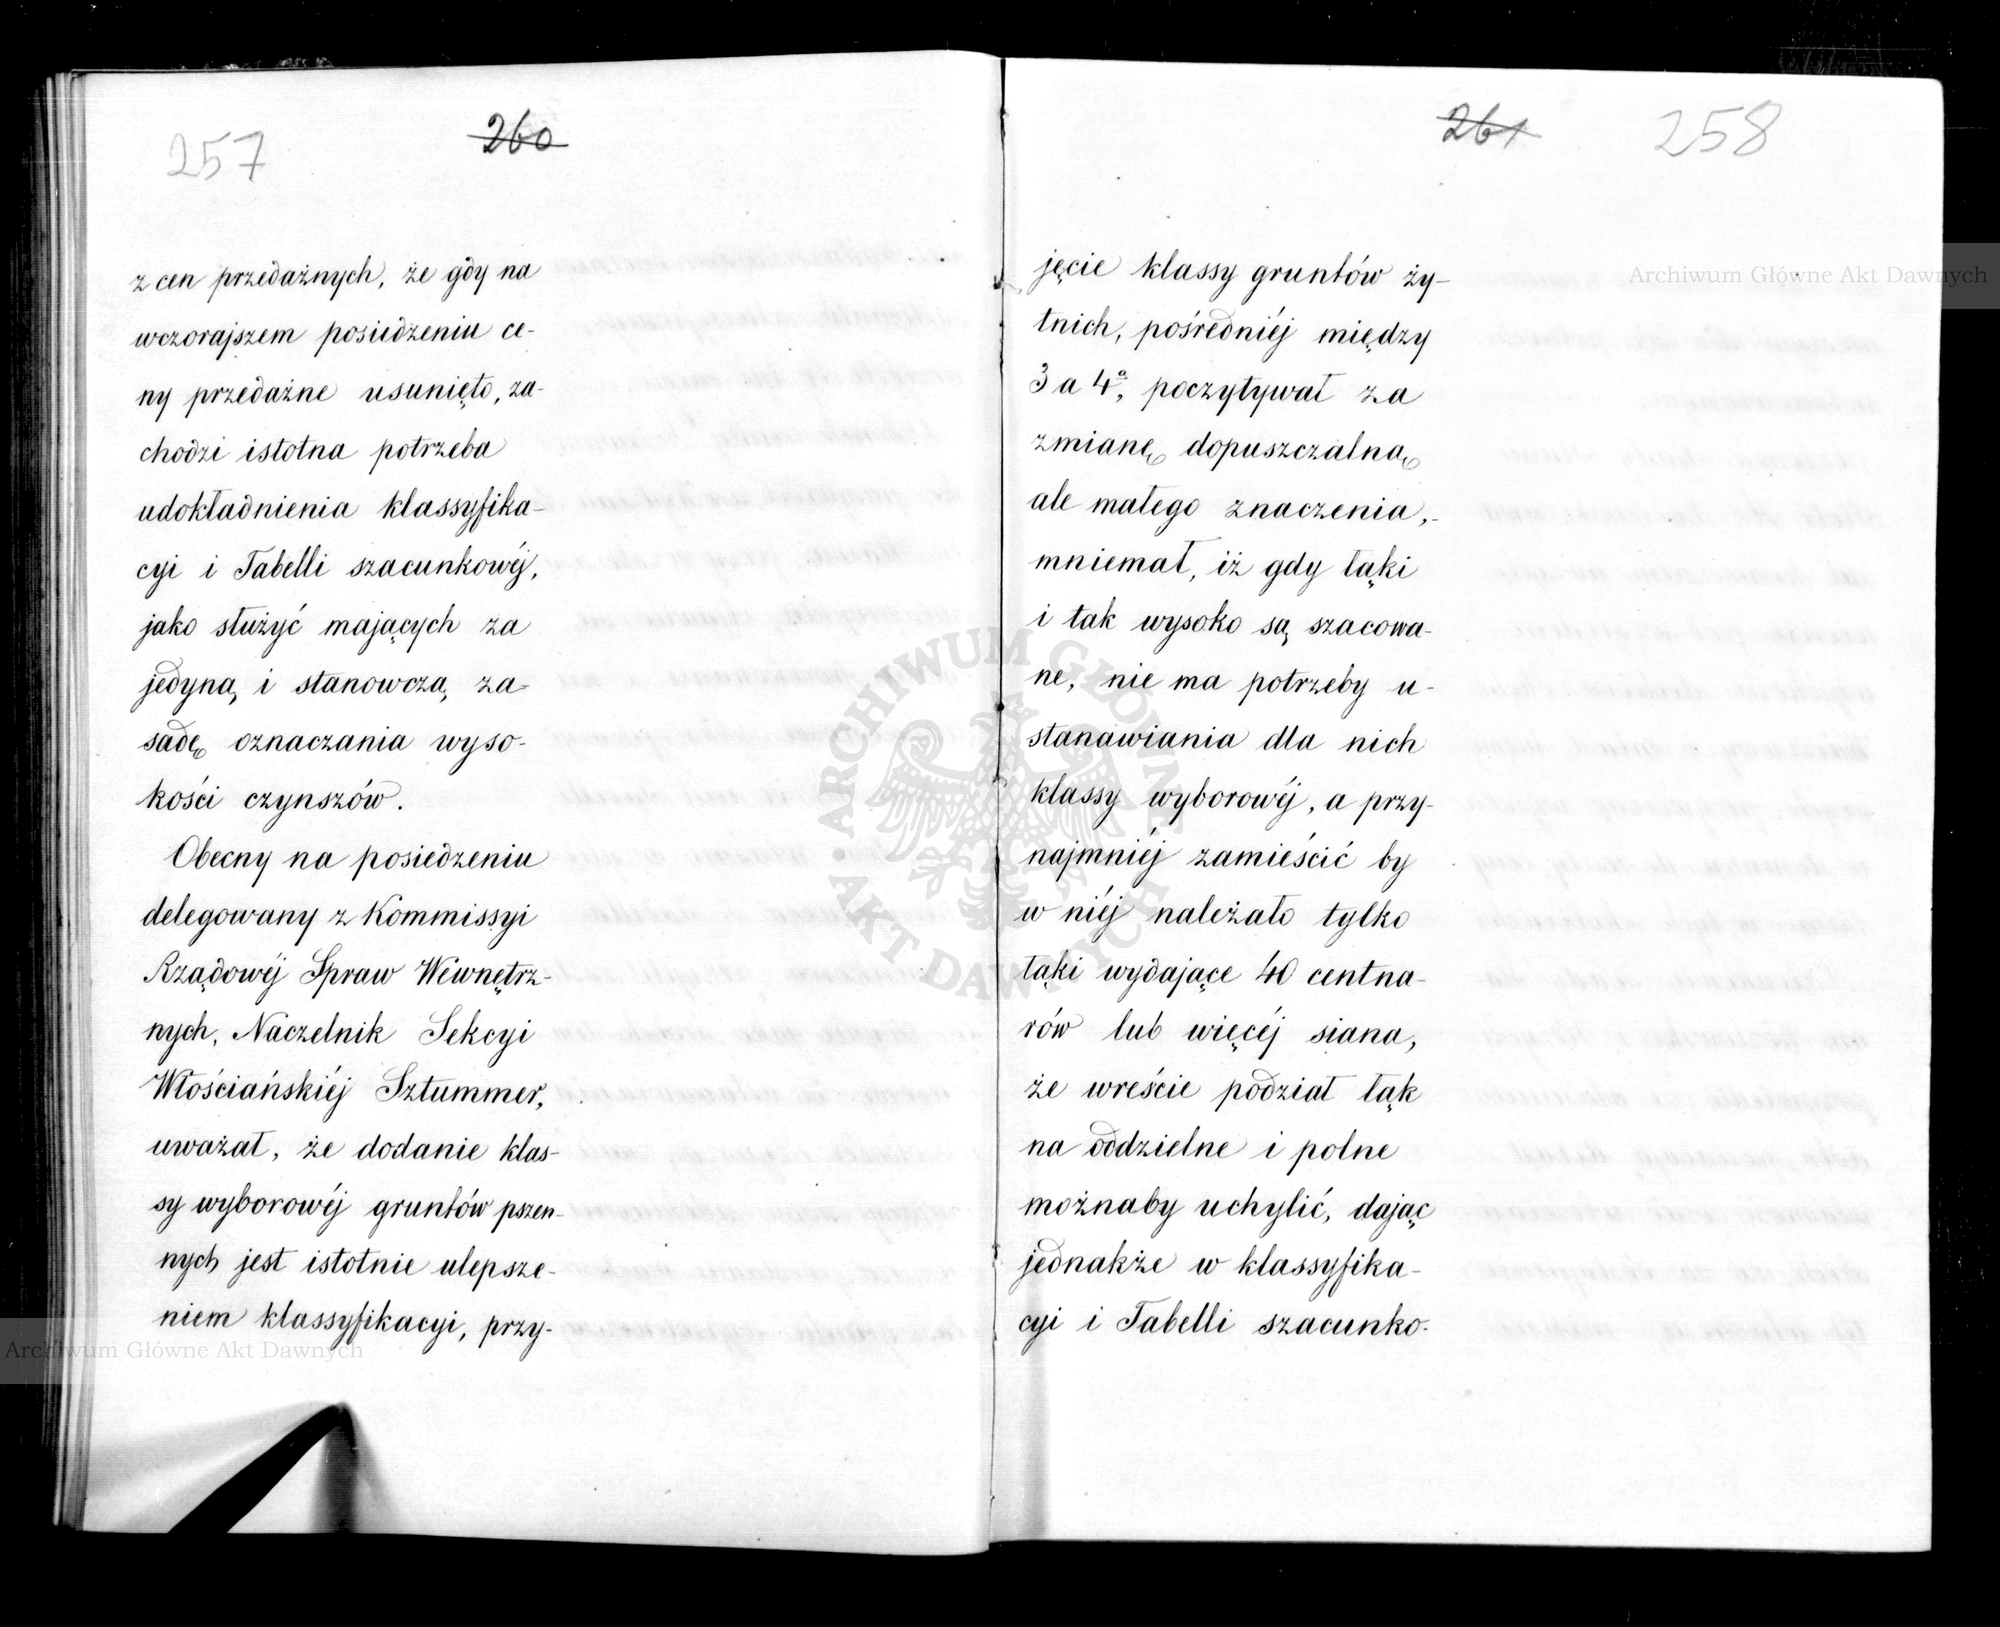 257
260
z cen przedażnych, że gdy na
wczorajszem posiedzeniu ce-
ny przedażne usunięto, za-
chodzi istotna potrzeba
udokładnienia klassyfika-
cyi i Tabelli szacunkowéj,
jako służyć mających za
jedyną i stanowczą za-
sadę oznaczania wyso-
kości czynszów.
Obecny na posiedzeniu
delegowany z Kommissyi
Rządowéj Spraw Wewnętrz-
nych, Naczelnik Sekcyi
Włościańskiéj Sztummer,
uważał, że dodanie klas-
sy wyborowéj gruntów pszen-
nych jest istotnie ulepsze-
niem klassyfikacyi, przy-
261
258
jęcie klassy gruntów ży-
tnich, pośredniéj między
3 a 4ª, poczytywał za
zmianę dopuszczalną
ale małego znaczenia,
mniemał, iż gdy łąki
i tak wysoko są szacowa-
ne, nie ma potrzeby u-
stanawiania dla nich
klassy wyborowéj, a przy-
najmniéj zamieścić by
w niéj należało tylko
łąki wydające 40 centna-
rów lub więcéj siana,
że wreście podział łąk
na oddzielne i polne
możnaby uchylić, dając
jednakże w klassyfika-
cyi i Tabelli szacunko-
Archiwum Główne Akt Dawnych
Archiwum Główne Akt Dawnych
ARCHIWUM GŁÓWNE
AKT DAWNYCH